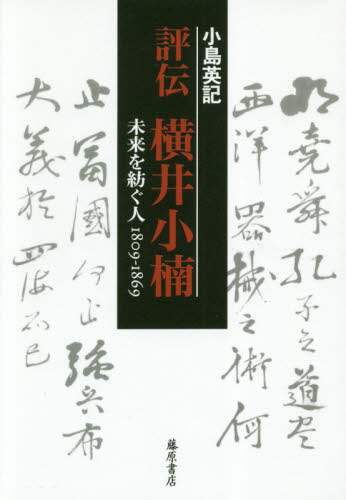 小島英記
評伝 横井小楠
未来を紡ぐ人 1809-1869
明堯舜孔子之道盡
西洋器械之術何
止冨國何止強兵布
大義於四海而已
藤原書店